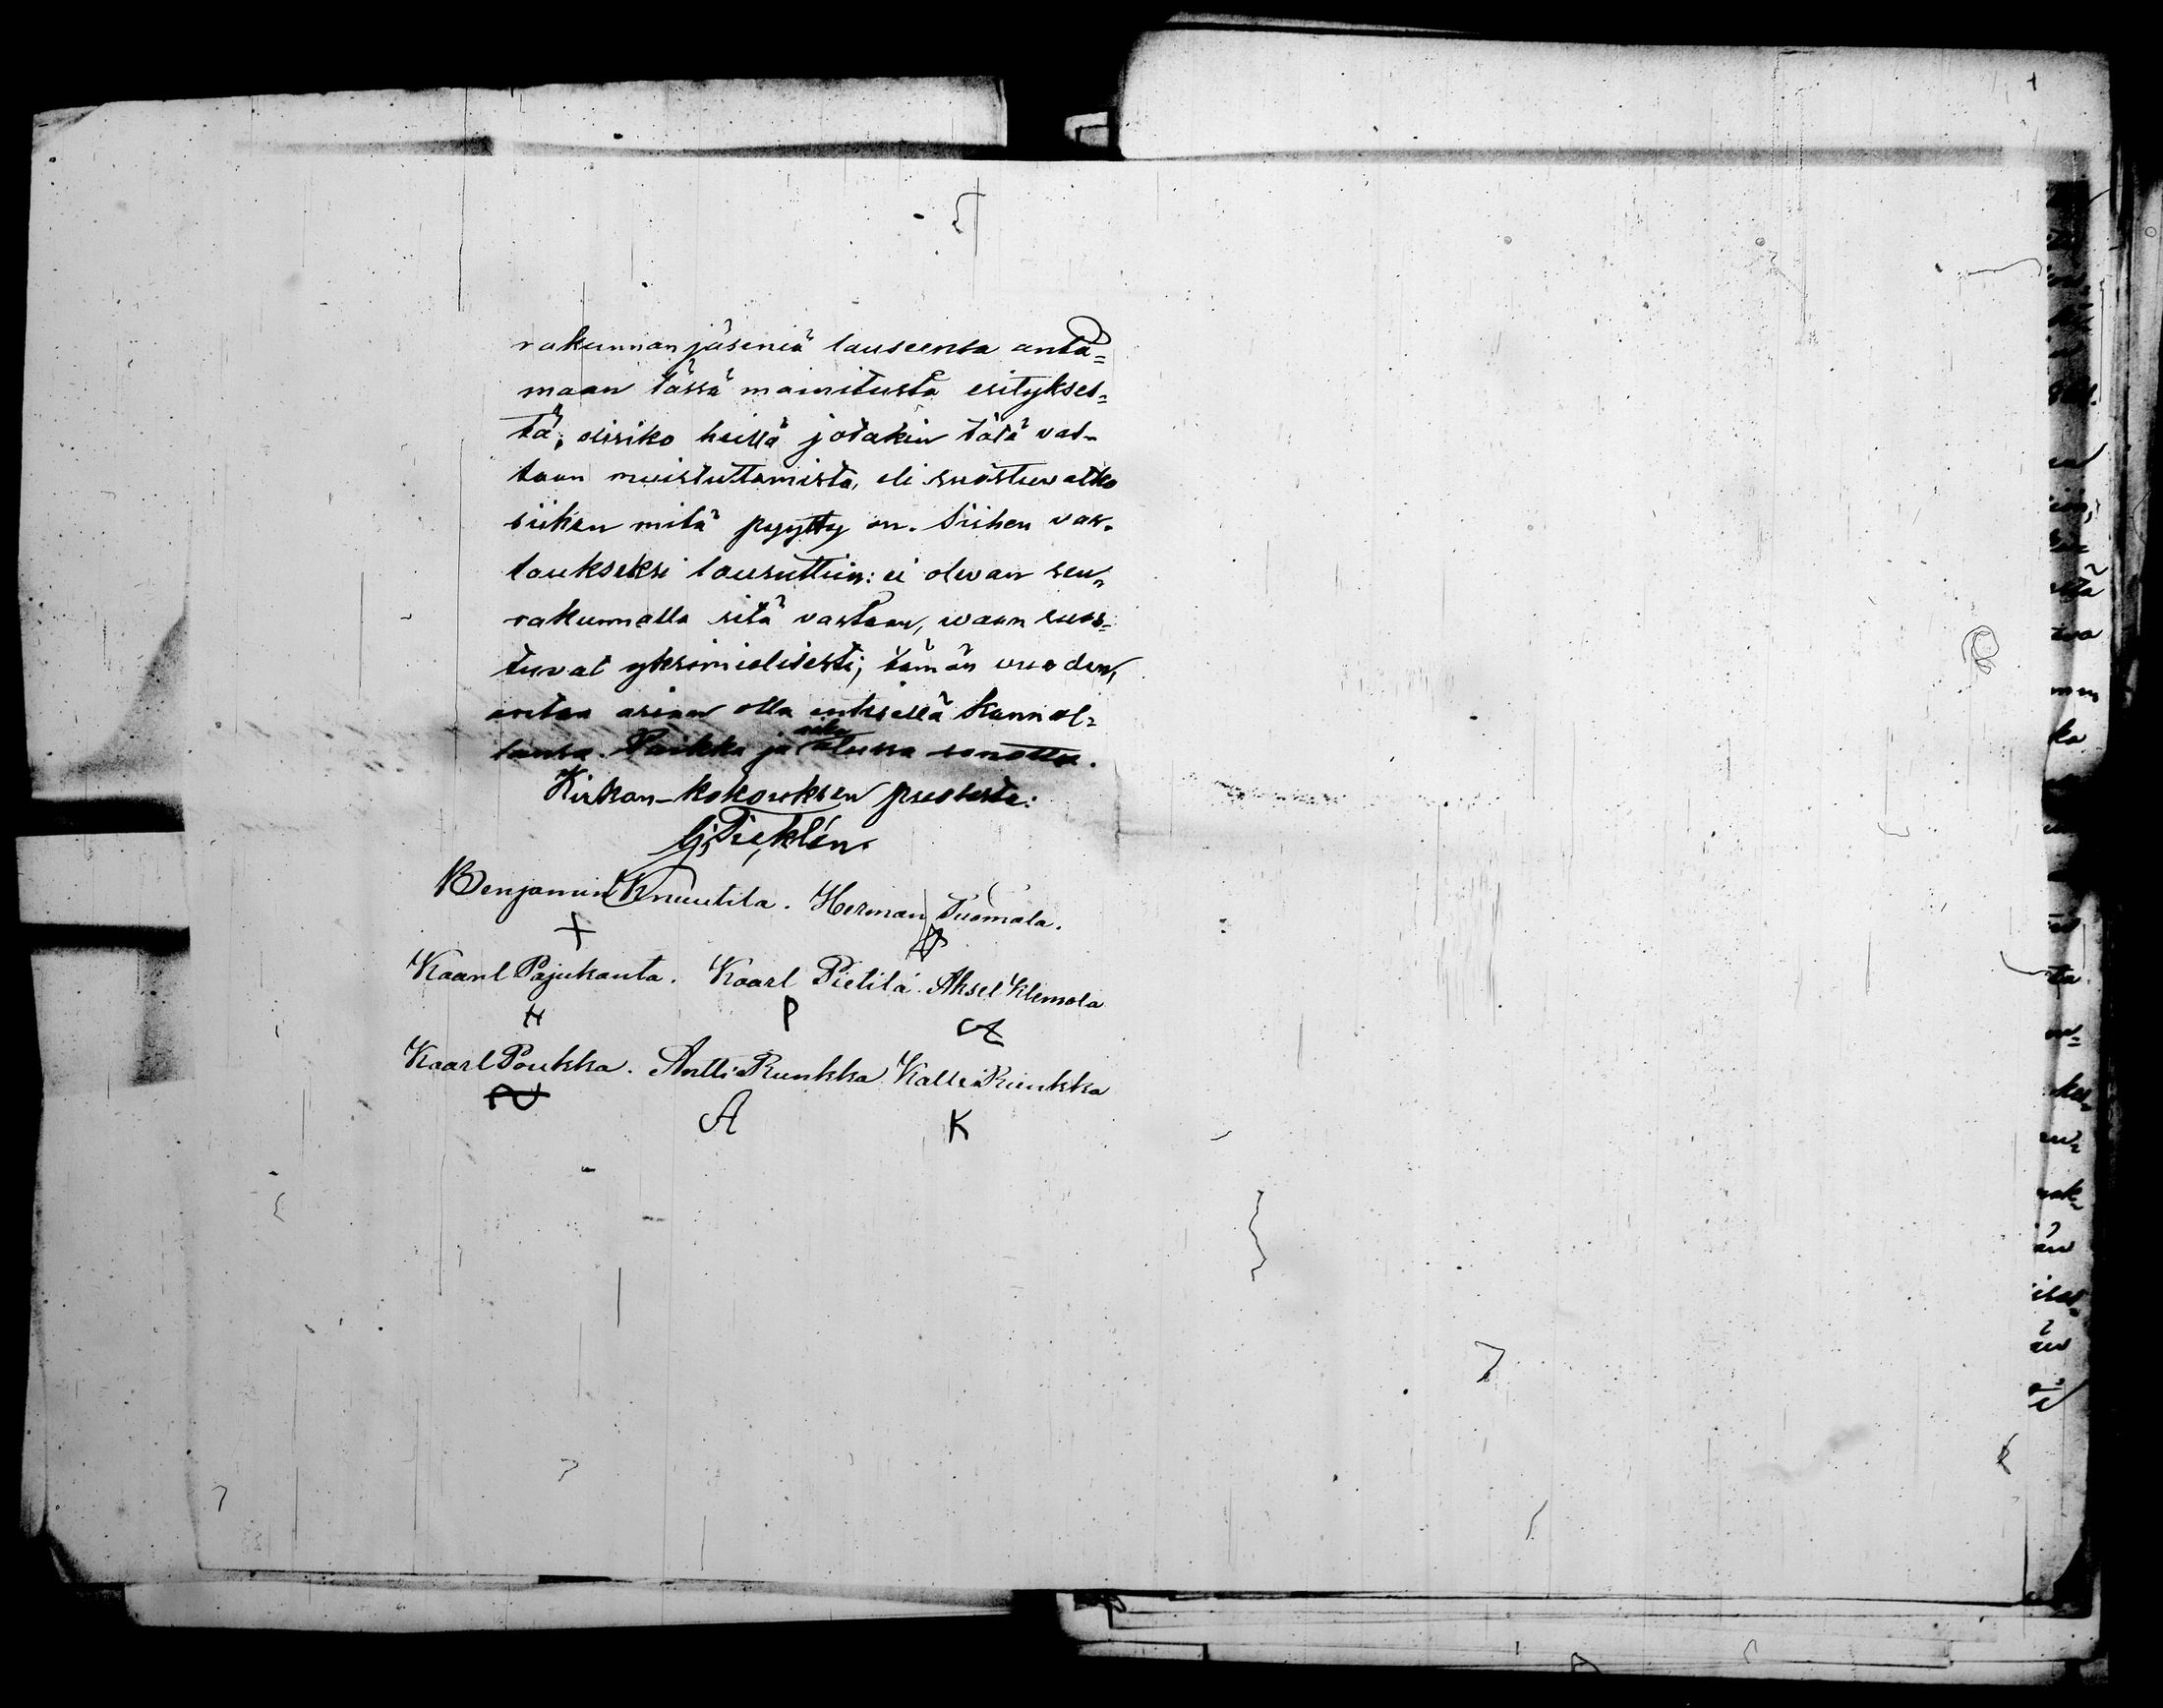 rakunnan jäseniä lauseensa anta=
maan tässä mainitusta esitykses=
tä; olisiko heillä jotakin tätä vas=
taan muistuttamista, eli suostuvatko
siihen mitä pyytty on. Siihen vas=
taukseksi lausuttiin: ei olevan seu=
rakunnalla sitä vastaan, waan suos=
tuvat yksimielisesti; tämän vuoden,
antaa asian olla entisellä kannal=
lansa. Paikka ja aika alussa sanottu.
Kirkon-kokouksen puolesta:
Benjamin Knuutila. Herman Tuomala.
Kaarl Pajukanta. Kaarl Pietilä. Aksel Klemola
H P
Kaarl Poukka. Antti Runkka Kalle Runkka
A K